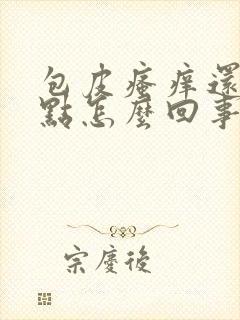 包皮瘙癢還
點怎麼回事
宗慶後